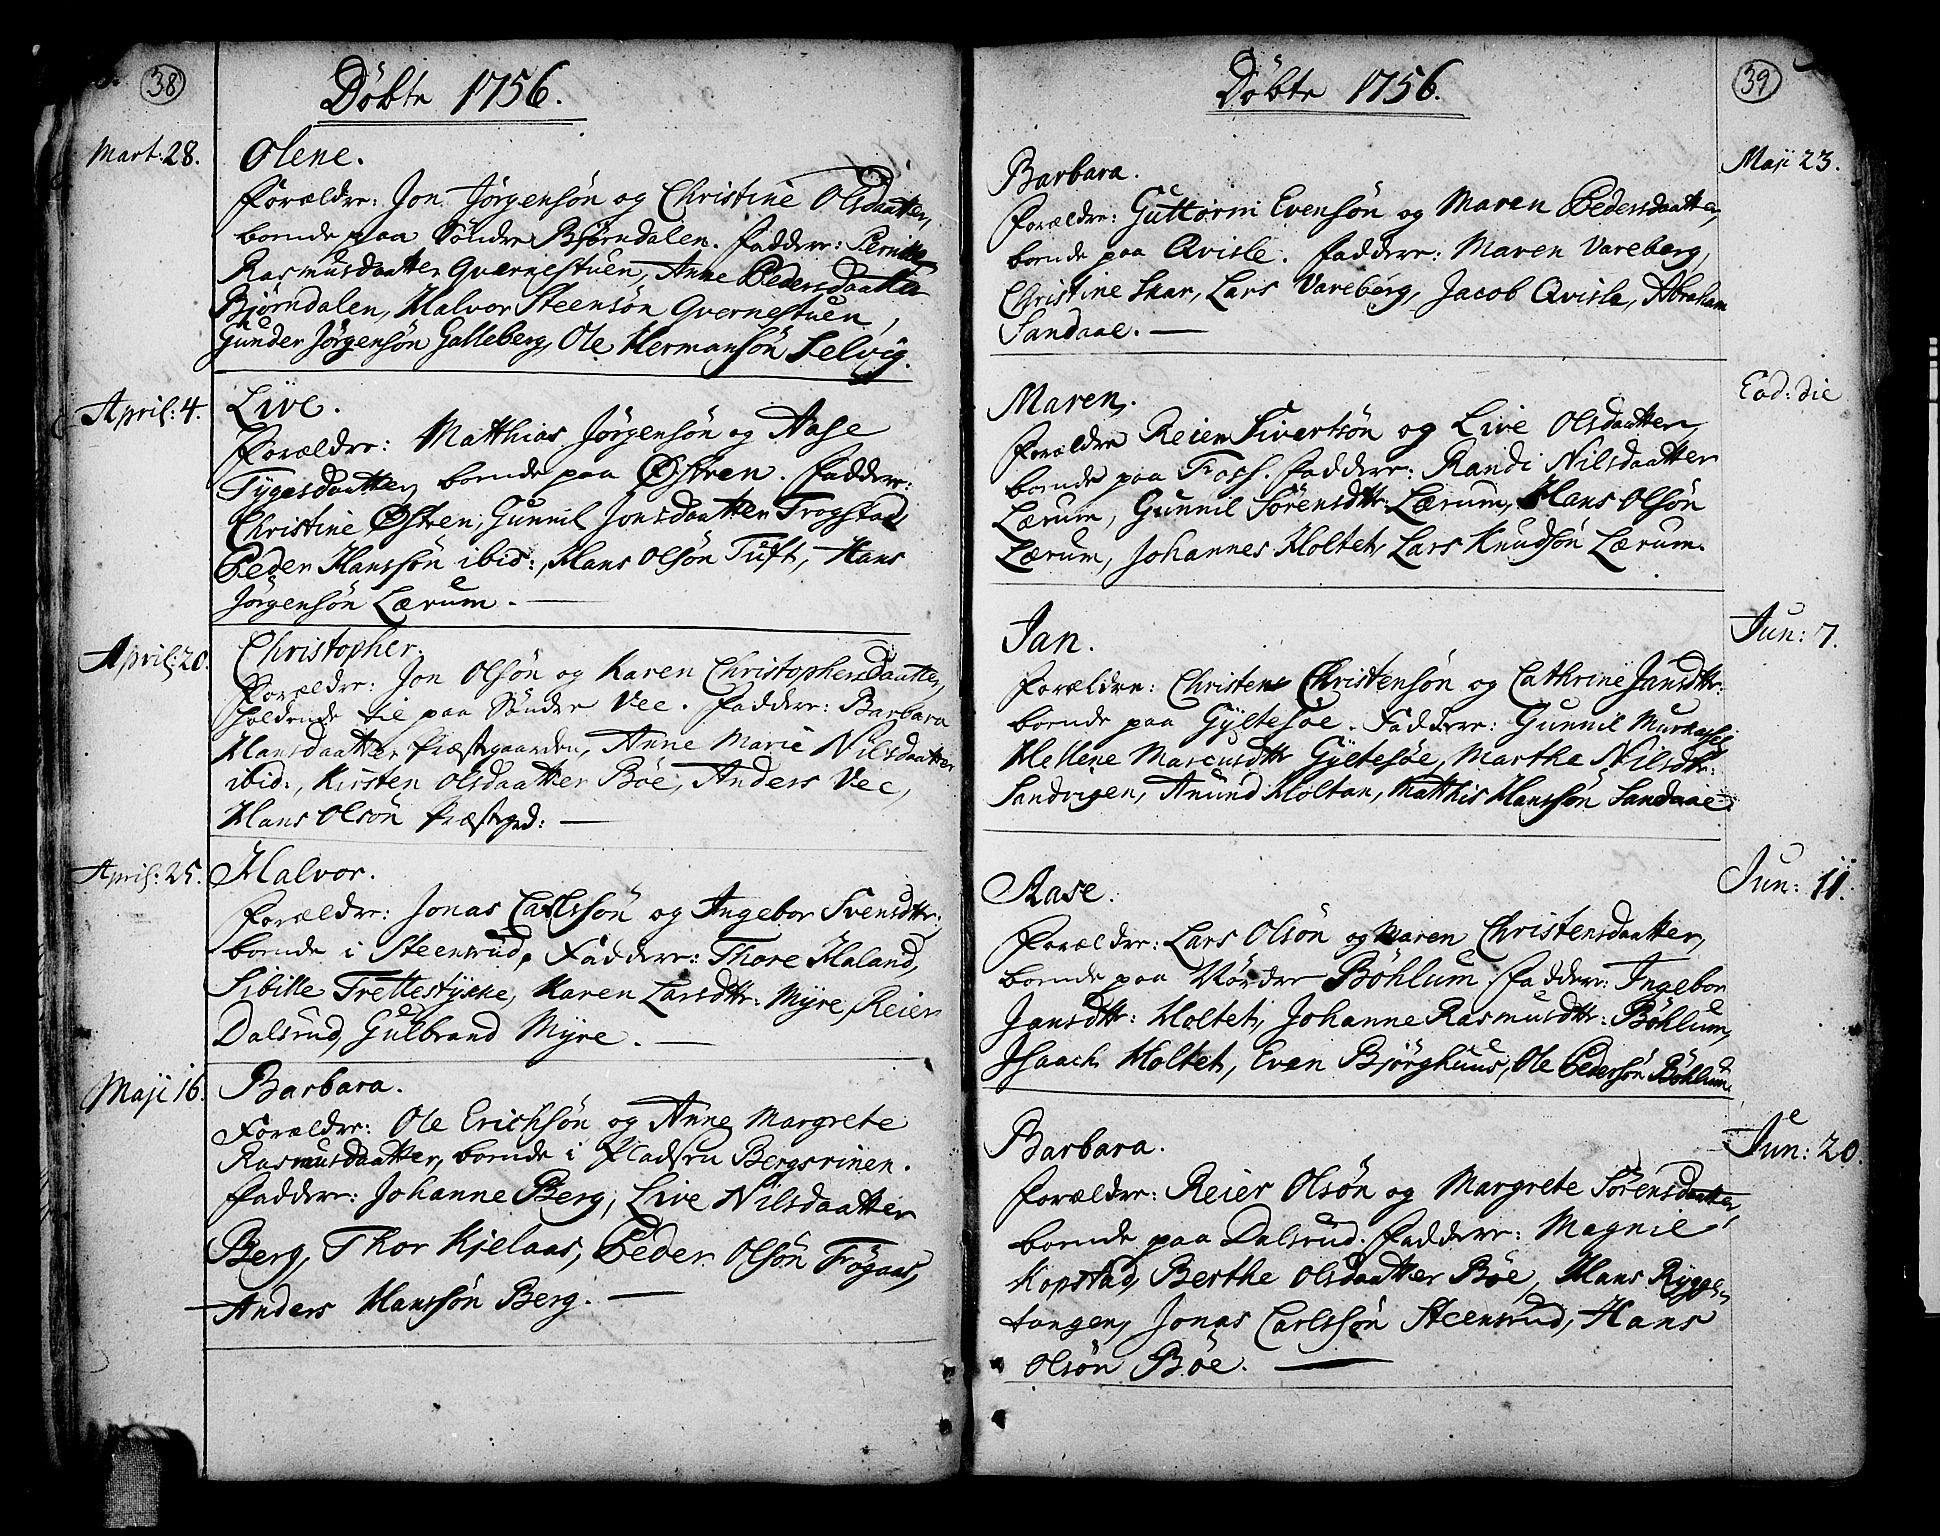 38
Döbte 1756.
Mart: 28.
Olene.
Forældre: Jon Jörgensön og Christine Olsdaatter,
boende paa Söndre Björndalen. Faddere: Pernille
Rasmusdaatter Qvernestuen, Anne Pedersdaatter
Björndalen, Halvor Steensön Qvernestuen,
Gunder Jörgensön Galleberg, Ole Hermansön Selvig.
April: 4.
Live.
Forældre: Matthias Jörgensön og Aase
Tygesdaatter, boende paa Østren. Faddere:
Christine Østren, Gunnil Jonsdaatter Trogstad,
Peder Hanssön ibid:, Hans Olsön Tuft, Hans
Jörgensön Lærum.
April: 20.
Christopher.
Forældre: Jon Olsön og Karen Christophersdaatter,
holdende til paa Sönder Vee. Faddere: Barbara
Hansdaatter Præstegaarden, Anne Marie Nilsdaatter
ibid:, Kirsten Olsdaatter Böe, Anders Vee,
Hans Olsön Præstegrd:
April: 25.
Halvor.
Forældre: Jonas Carlssön og Ingebor Svensdttr:,
boende i Steensrud, Faddere: Thore Haland,
Sibille Trettestykke, Karen Larsdttr: Myre, Reier
Dalsrud, Gulbrand Myre.
Maji 16.
Barbara.
Forældre: Ole Erichsön og Anne Margrete
Rasmusdaatter, boende i Pladsen Bergsrinen.
Faddere: Johanne Berg, Live Nilsdaatter
Berg, Thor Kjelaas, Peder Olsön Fögaas,
Anders Hanssön Berg.
39
Döbte 1756.
Maji 23.
Barbara.
Forældre: Guttorm Evensön og Maren Pedersdaatter,
boende paa Qvisle. Faddere: Maren Vareberg,
Christine Skar, Lars Vareberg, Jacob Qvisle, Abraham
Sandaae.
Eod: die
Maren.
Forældre Reier Sivertsön og Live Olsdaatter,
boende paa Foss. Faddere: Randi Nilsdaatter
Lærum, Gunnil Sörensdttr: Lærum, Hans Olsön
Lærum, Johannes Holtet, Lars Knudsön Lærum.
Jun: 7.
Jan.
Forældre: Christen Christensön og Cathrine Jansdttr:
boende paa Gyltesöe. Faddere: Gunnil
Hellene Marcusdttr Gyltesöe, Marthe Nilsdttr:
Sandvigen, Anund Holtan, Matthis Hanssön Sandaae.
Jun: 11.
Aase.
Forældre: Lars Olsön og Maren Christensdaatter,
boende paa Nördre Böhlum. Faddere: Ingebor
Jansdttr: Holtet, Johanne Rasmusdttr: Böhlum,
Isaach Holtet, Even Björghuus, Ole Pedersön Böhlum.
Jun: 20.
Barbara.
Forældre: Reier Olsön og Margrete Sörensdaatter,
boende paa Dalsrud. Faddere: Magnil
Kopstad, Berthe Olsdaatter Böe, Hans Rygge-
tangen, Jonas Carlssön Steensrud, Hans
Olsön Böe.